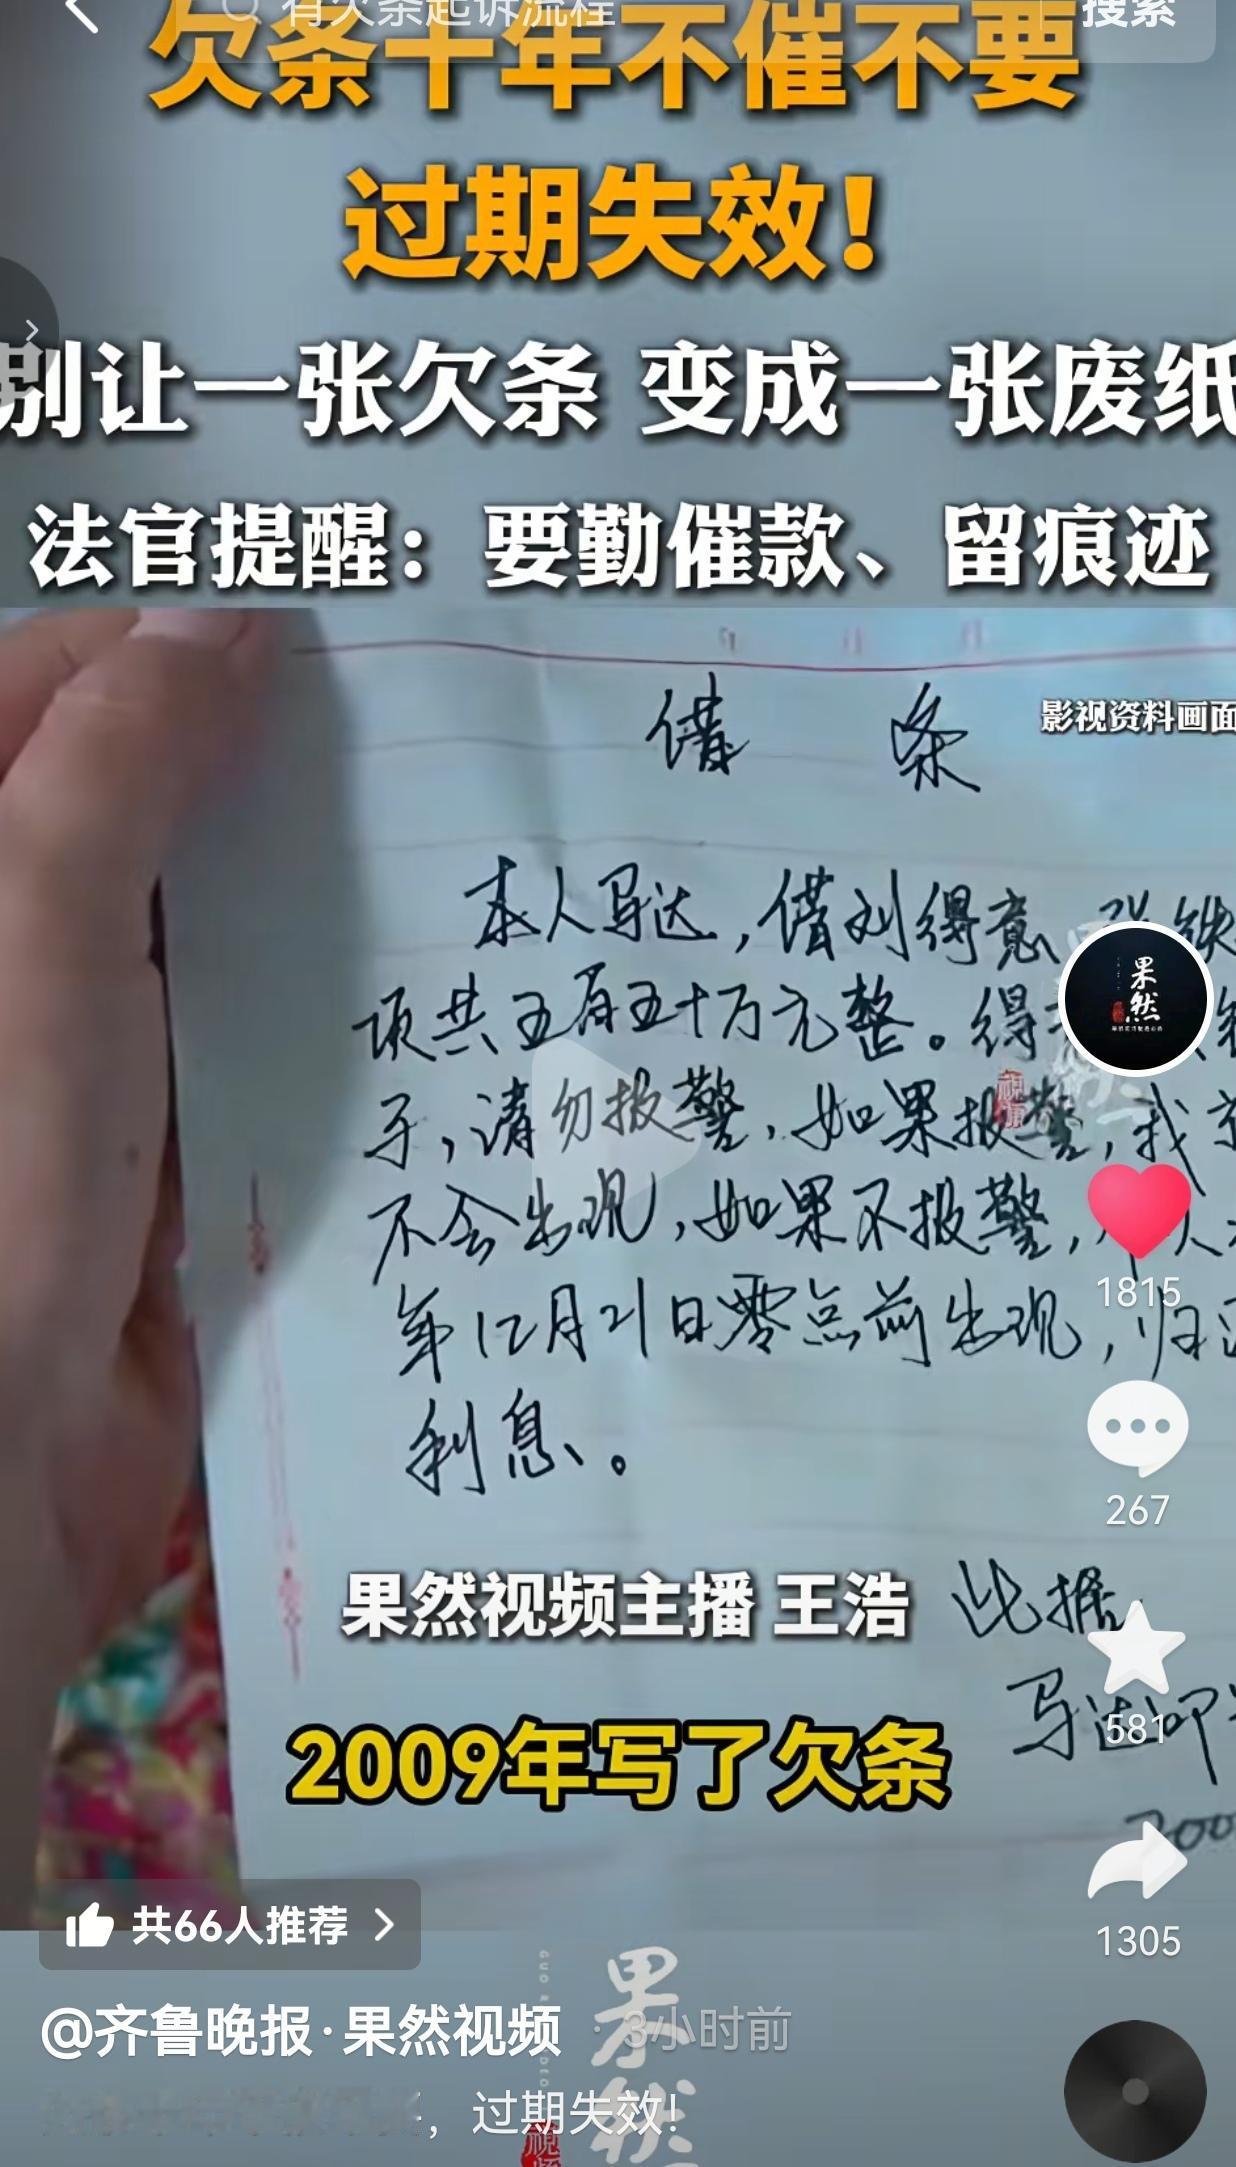 有欠条起诉流程
搜索
欠条十年不催不要
过期失效！
别让一张欠条 变成一张废纸
法官提醒：要勤催款、留痕迹
影视资料画面
借 条
本人马达，借刘得意
项共五百五十万元整。得
子，请勿报警，如果报警，我
不会出现，如果不报警，
年12月21日零点前出现，归
利息。
此据
马达
200
果然
1815
267
581
1305
果然视频主播 王浩
2009年写了欠条
共66人推荐
@齐鲁晚报·果然视频 · 3小时前
，过期失效！
果然